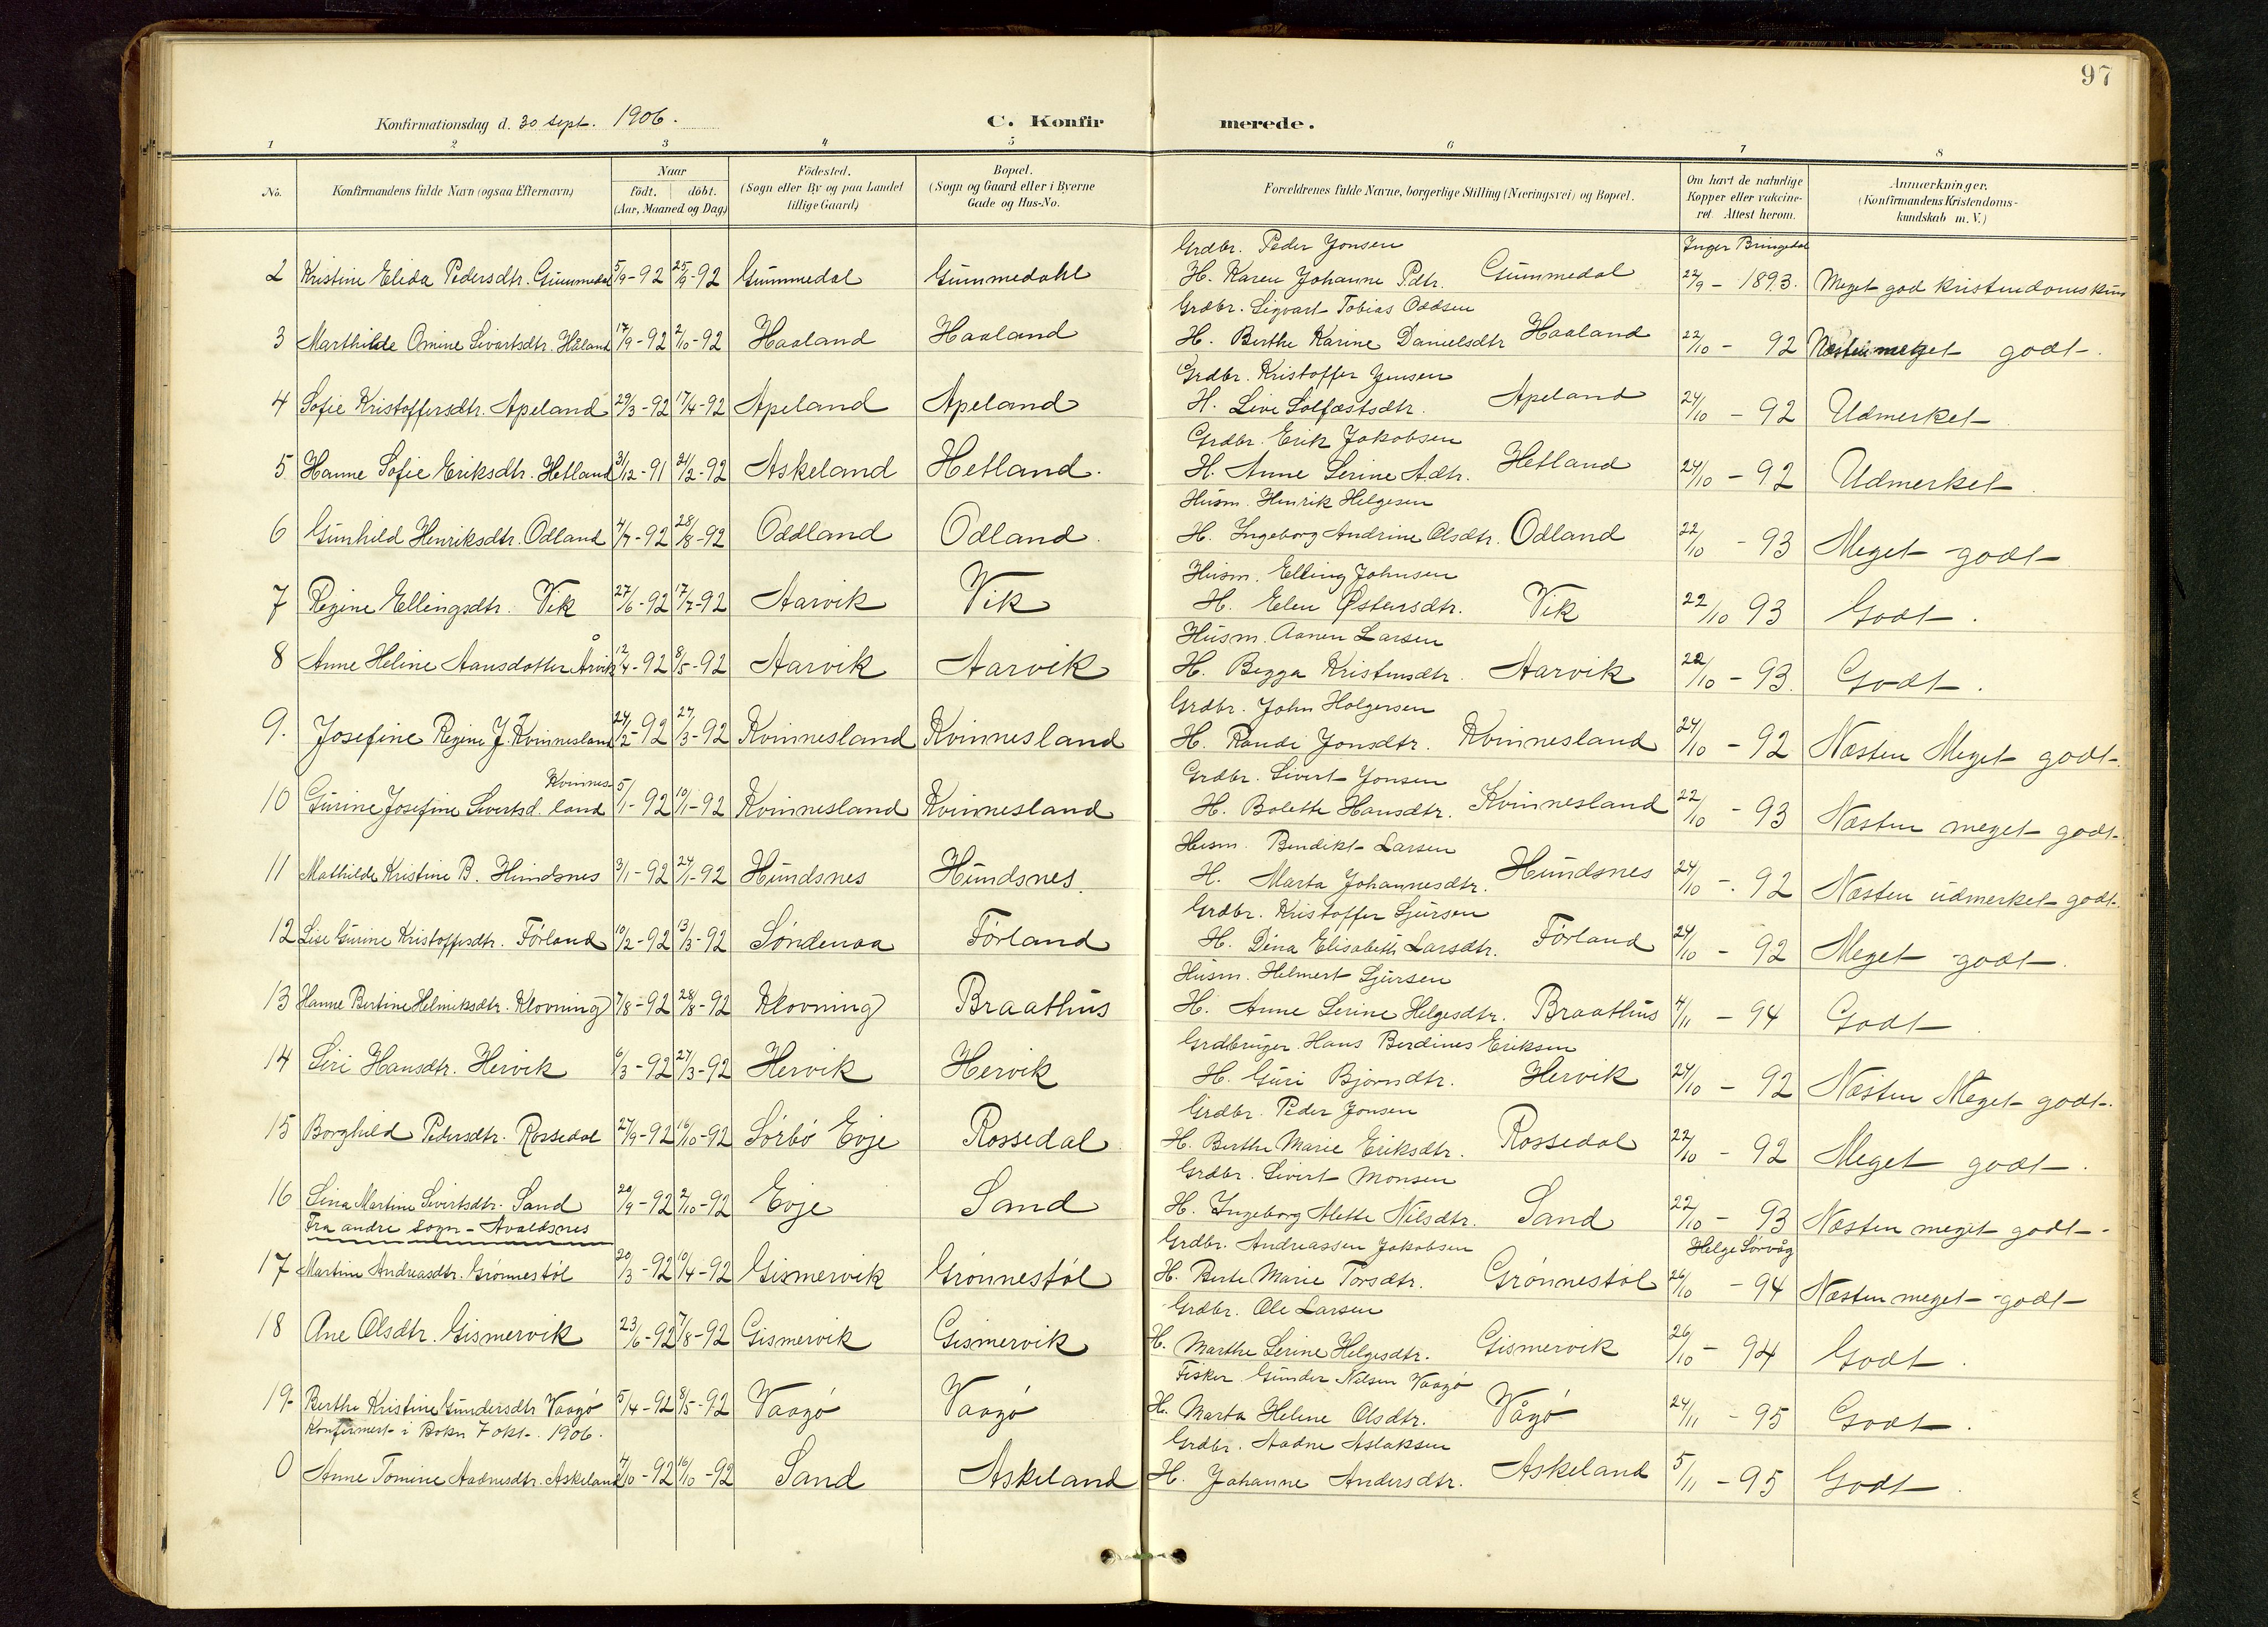 97
Konfirmationsdag d. 30 sept. 1906.
C. Konfirmerede.
1 2 3 4 5 6 7 8
No. Konfirmandens fulde Navn (ogsaa Efternavn) Naar födt. döbt. (Aar, Maaned og Dag) Födested. (Sogn eller By og paa Landet tillige Gaard) Bopæl. (Sogn og Gaard eller i Byerne Gade og Hus-No. Forældrenes fulde Navne, borgerlige Stilling (Næringsvei) og Bopæl. Om havt de naturlige Kopper eller vakcineret. Attest herom. Anmærkninger. (Konfirmandens Kristendomskundskab m. V.)
Grdbr. Peder Jonsen Inger Bringedal
2 Kristine Elida Pedersdtr. Gummedal 5/9-92 25/9-92 Gummedal Gummedahl H. Karen Johanne Pdtr. Gummedal 22/9 - 1893. Meget god kristendomskun
Grdbr. Sigvart Tobias Oddsen
3 Marthilde Omine Sivartsdtr. Håland 17/9-92 2/10-92 Haaland Haaland H. Berthe Karine Danielsdtr Haaland 22/10 - 92 Næsten meget godt.
Grdbr. Kristoffer Jensen
4 Sofie Kristoffersdtr. Apeland 29/3-92 17/4-92 Apeland Apeland H. Live Solfæstsdtr. Apeland 24/10 - 92 Udmerket
Grdbr. Erik Jakobsen
5 Hanne Sofie Eriksdtr. Hetland 31/12-91 21/2-92 Askeland Hetland. H. Anne Serine Adtr. Hetland 24/10 - 92 Udmerket
Husm. Henrik Helgesen
6 Gunhild Henriksdtr. Odland 4/7-92 28/8-92 Oddland Odland. H. Ingeborg Andrine Olsdtr. Odland 22/10 - 93 Meget godt
Husm. Elling Johnsen
7 Regine Ellingsdtr. Vik 27/6-92 17/7-92 Aarvik Vik H. Elen Østensdtr. Vik 22/10 93 Godt.
Husm. Aanen Larsen
8 Anne Heline Aansdotter Årvik 12/4-92 8/5-92 Aarvik Aarvik H. Begga Kristensdtr. Aarvik 22/10 - 93. Godt.
Grdbr. John Holgersen
9. Josefine Regine J. Kvinnesland 24/2-92 27/3-92 Kvinnesland Kvinnesland H. Randi Jonsdtr. Kvinnesland 24/10 - 92 Næsten Meget godt.
Kvinnes- Grdbr. Sivert Jonsen
10 Gurine Josefine Sivertsd. land 5/1-92 10/1-92 Kvinnesland Kvinnesland H. Bolette Hansdtr. Kvinnesland 22/10 - 93 Næsten meget godt.
Husm. Bendikt Larsen
11 Mathilde Kristine B. Hundsnes 3/1-92 24/1-92 Hundsnes Hundsnes. H. Marta Johannesdtr. Hundsnes 24/10 - 92 Næsten udmerket godt.
Grdbr. Kristoffer Sjursen
12 Lise Gurine Kristoffersdtr. Förland 10/2-92 13/3-92 Söndenaa Förland H. Dina Elisabeth Larsdtr. Förland 24/10 - 92 Meget godt.
Husm. Helmert Sjursen
13 Hanne Bertine Helmiksdtr. Klovning 7/8-92 28/8-92 Klovning Braathus H. Anne Serine Helgesdtr. Braathus 4/11 - 94 Godt.
Grdbruger Hans Berdines Eriksen
14 Siri Hansdtr. Hervik 6/3-92 27/3-92 Hervik Hervik H. Guri Bjorndtr. Hervik 24/10 - 92 Næsten Meget godt.
Grdbr. Peder Jonsen
15 Borghild Pedersdtr. Rossedal 27/9-92 16/10-92 Sörbö Evje Rossedal H. Berthe Marie Eriksdtr. Rossedal 22/10 - 92 Meget godt.
Grdbr. Sivert Monsen
16 Lina Martine Sivertsdtr. Sand 20/9-92 2/10-92 Evje Sand H. Ingeborg Alette Nilsdtr. Sand 22/10 - 93 Næsten meget godt.
Fra andre sogn - Avaldsnes Grdbr. Andreassen Jakobsen Helge Sørvåg
17 Martine Andreasdtr. Grönnestöl 20/3-92 10/4-92 Gismervik Grönnestöl H. Berte Marie Torsdtr. Grönnestöl 26/10 - 94 Næsten meget godt
Grdbr. Ole Larsen
18 Ane Olsdtr. Gismervik 23/6-92 7/8-92 Gismervik Gismervik H. Marthe Serine Helgesdtr. Gismervik 26/10 - 94 Godt.
Fisker Gunder Nilsen Vaagö
19 Berthe Kristine Gundersdtr Vaagö 5/4-92 8/5-92 Vaagö Vaagö H. Marta Helene Olsdtr. Vågö 24/11 - 95 Godt.
Konfirmert i Bokn 7 okt. 1906. Grdbr. Aadne Aslaksen
0 Anne Tomine Aadnesdtr. Askeland 4/10-92 16/10-92 Sand Askeland H. Johanne Andersdtr. Askeland 5/11 - 95 Godt.